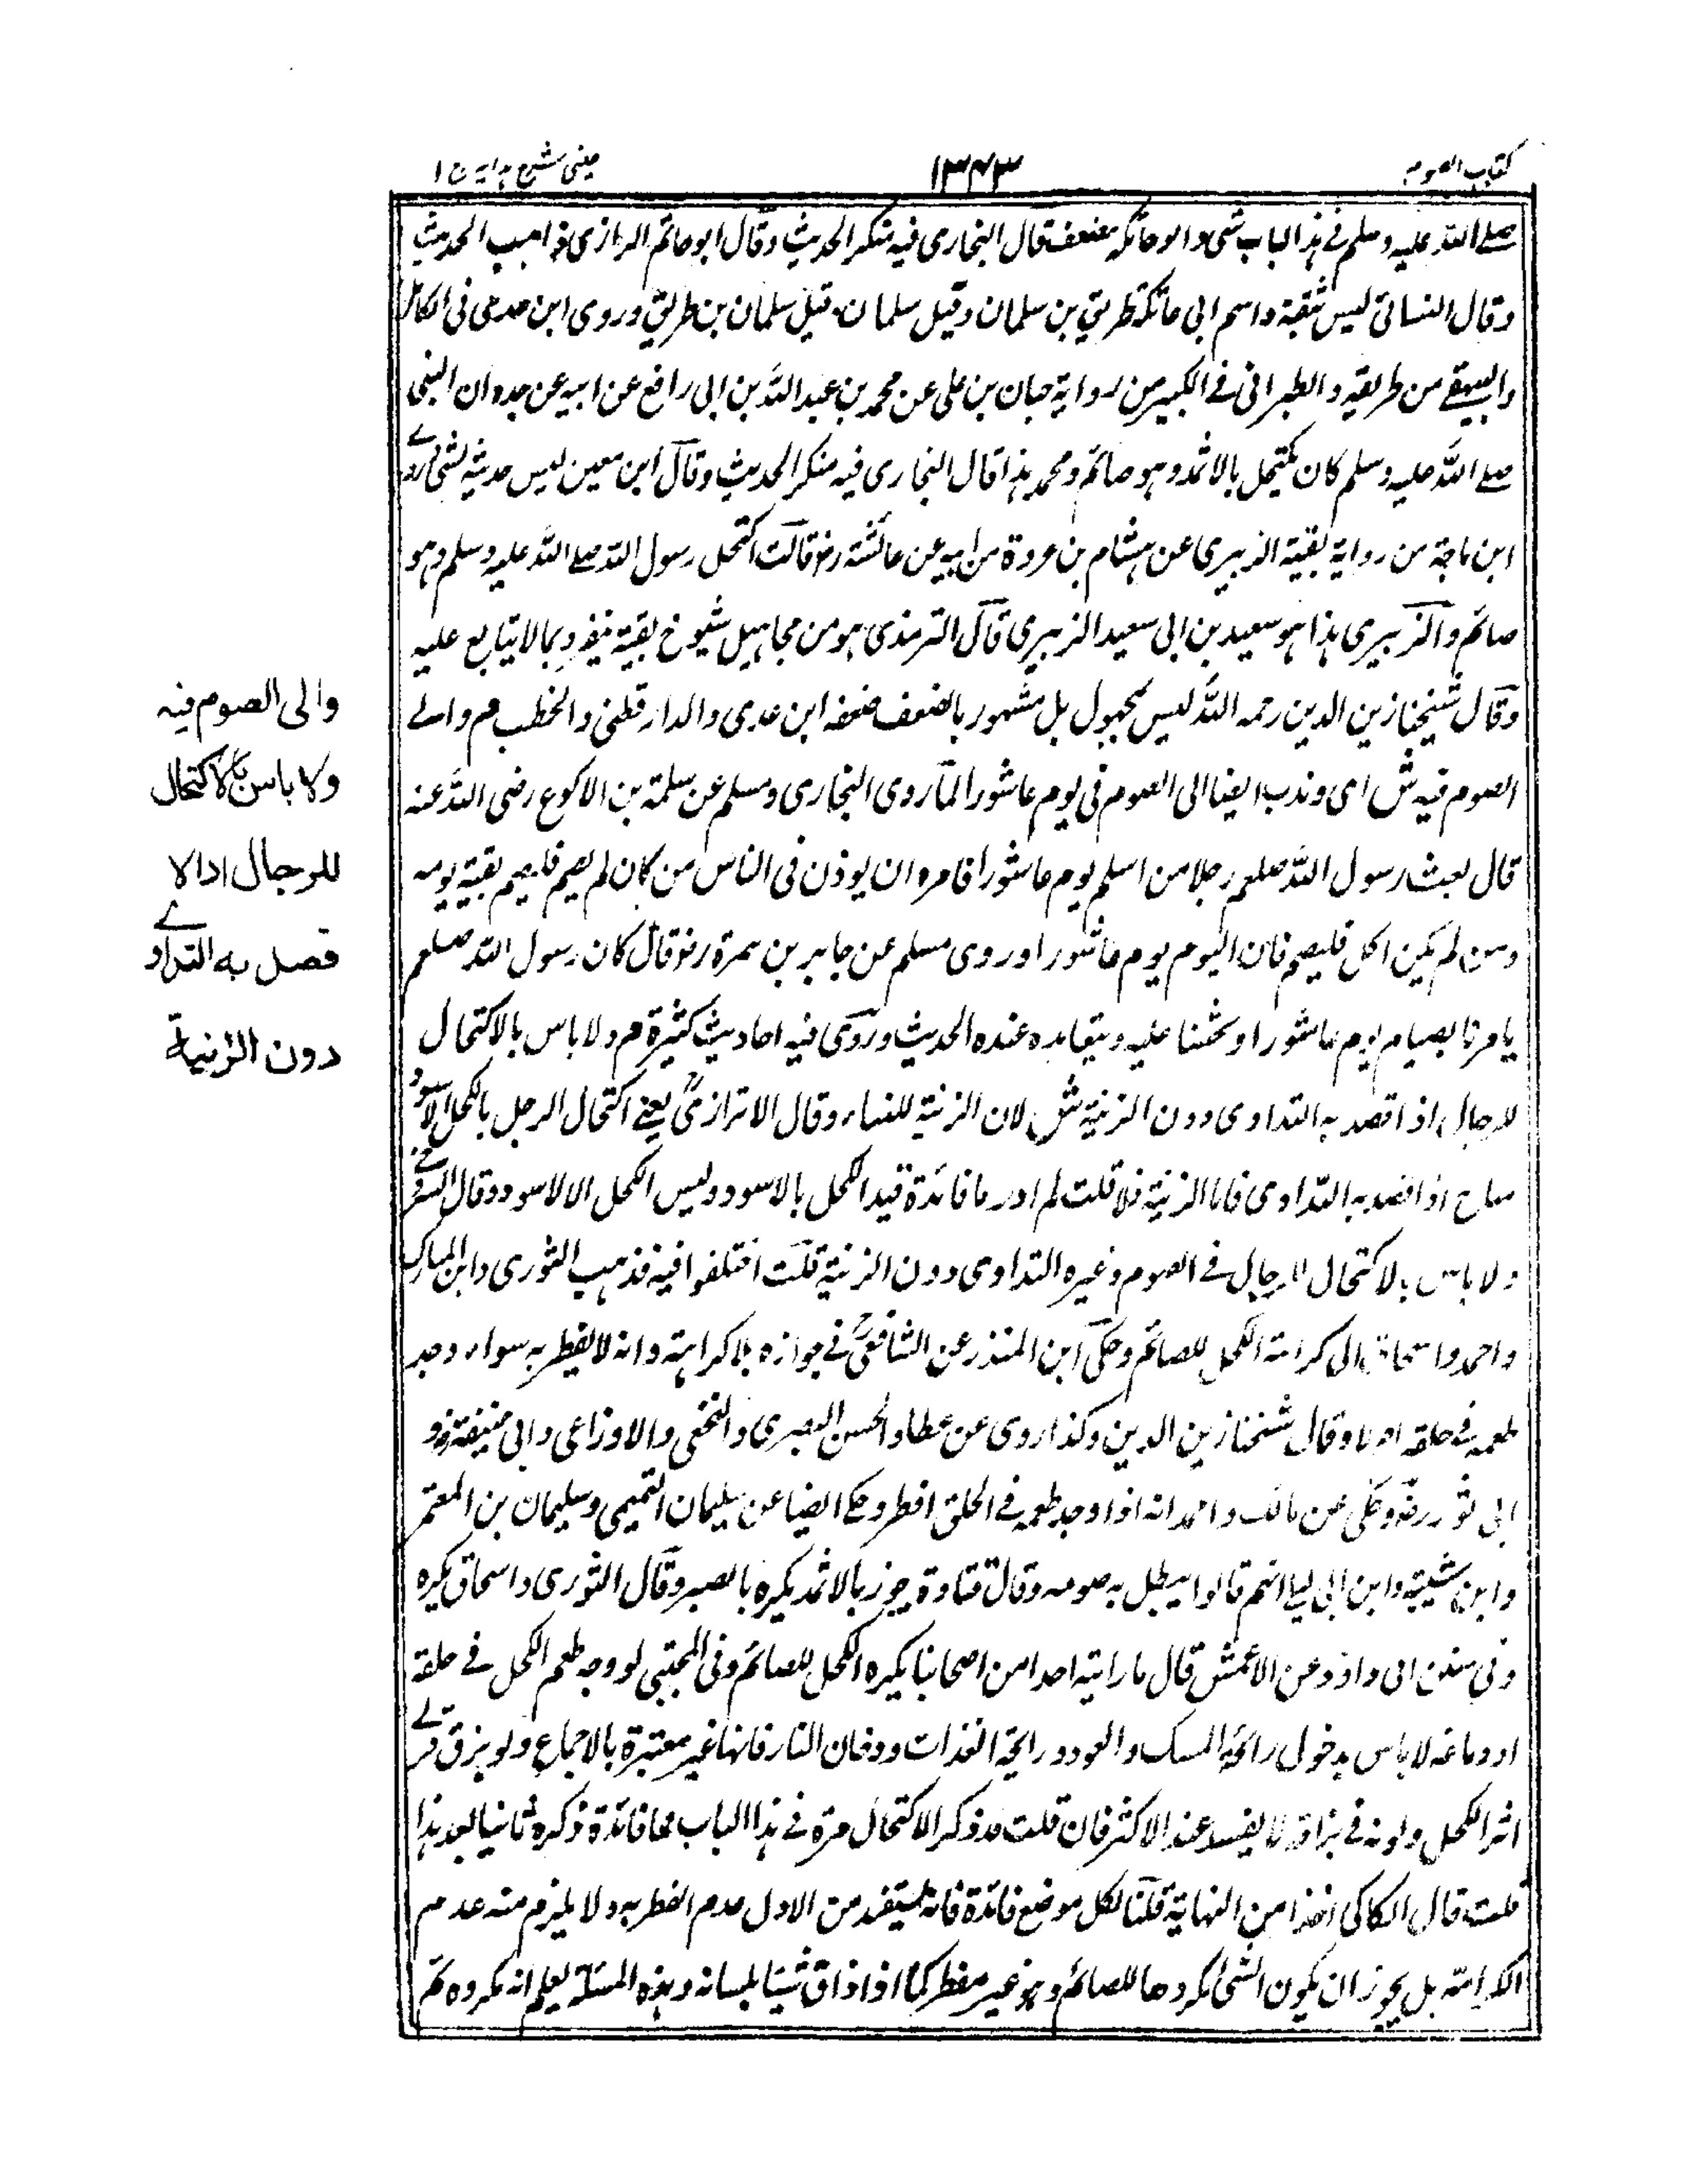 كتاب الصوم
١٣٤٣
عينى شرح هدايه ج ١
صلے الله عليه وسلم فے هذا الباب شى وابو عاتكه مضعف قال البخارى فيه منكر الحديث وقال ابو حاتم الرازى ذاهب الحديث
وقال النسائى ليس بثقة واسم ابى عاتكة طريق بن سلمان وقيل سلمان وقيل سلمان بن طريق وروى ابن عدى فى الكامل
والبيهقے من طريقه والطبرانى فے الكبير من رواية حبان بن على عن محمد بن عبد الله بن ابى رافع عن ابيه عن جده ان النبى
صلے الله عليه وسلم كان يكتحل بالاثمد وهو صائم ومحمد هذا قال البخارى فيه منكر الحديث وقال ابن معين ليس حديثه بشى وروے
ابن ماجة من رواية بقية الزبيرى عن هشام بن عروة من ابيه عن عائشة رض قالت اكتحل رسول الله صلے الله عليه وسلم وهو
صائم والزبيرى هذا هو سعيد بن ابى سعيد الزبيرى قال الترمذى هو من مجاهيل شيوخ بقية ينفرد بما لا يتابع عليه
وقال شيخنا زين الدين رحمه الله ليس بمجهول بل مشهور بالضعف ضعفه ابن عدى والدارقطنى والخطيب م والے
الصوم فيه ش اى وندب ايضا الى الصوم فى يوم عاشورا لما روى البخارى ومسلم عن سلمة بن الاكوع رضى الله عنه
قال بعث رسول الله صلعم رجلا من اسلم يوم عاشورا فامره ان يوذن فى الناس من كان لم يصم فليصم بقية يومه
ومن لم يكن اكل فليصم فان اليوم يوم عاشورا وروى مسلم عن جابر بن سمرة رض قال كان رسول الله صلعم
يامرنا بصيام يوم عاشورا ويحثنا عليه ويتعاهده عنده الحديث وروى فيه احاديث كثيرة م ولا باس بالاكتحال
للرجال اذا قصد به التداوى دون الزينة ش لان الزينة للنساء وقال الاترازىؒ يعنے اكتحال الرجل بالكحل الاسود
مباح اذا قصد به التداوى فاما الزينة فلا قلت لم ادر ما فائدة قيد الكحل بالاسود وليس الكحل الا الاسود وقال
ولا باس بالاكتحال للرجال فے الصوم وغيره التداوى دون الزينة قلت اختلفوا فيه فذهب الثورى وابن المبارك
واحمد واسحاق الى كراهة الكحل للصائم وحكى ابن المنذر عن الشافعىؒ فے جوازه بلا كراهة وانه لا يفطر به سواء وجد
طعمه فے حلقه ام لا وقال شيخنا زين الدين وكذا روى عن عطا والحسن البصرى والنخعى والاوزاعى وابى حنيفة رض و
ابى ثور رض وحكى عن مالك واحمد انه اذا وجد طعمه فے الحلق افطر وحكے ايضا عن سليمان التميمى وسليمان بن المعتمر
وابن شيبة وابن ابى ليلے انهم قالوا يبطل به صومه وقال قتادة يجوز بالاثمد يكره بالصبر وقال الثورى واسحاق يكره
وفى سنن ابى داؤد عن الاعمش قال ما رايته احدا من اصحابنا يكره الكحل للصائم وفى المجتبى لو وجد طعم الكحل فے حلقه
او دماغه لا باس بدخول رائحة المسك والعود ورائحة العذرات ودخان النار فانها غير معتبرة بالاجماع ولو بزق فرے
اثر الكحل ولونه فے بزاقه لا يفسد عند الاكثر فان قلت قد ذكر الاكتحال مرة فے هذا الباب فما فائدة ذكره ثانيا بعد هذا
قلت قال الكاكى اخذا من النهاية قلنا لكل موضع فائدة فانه يستفيد من الاول عدم الفطر به ولا يلزم منه عدم
الكراهة بل يجوز ان يكون الشى مكروها للصائم وهو غير مفطر كما اذا ذاق شيئا بلسانه وبهذه المسئلة يعلم انه مكروه ثم
والى الصوم فيه
ولا باس بالاكتحال
للرجال اذا لا
قصد به التداوے
دون الزنية